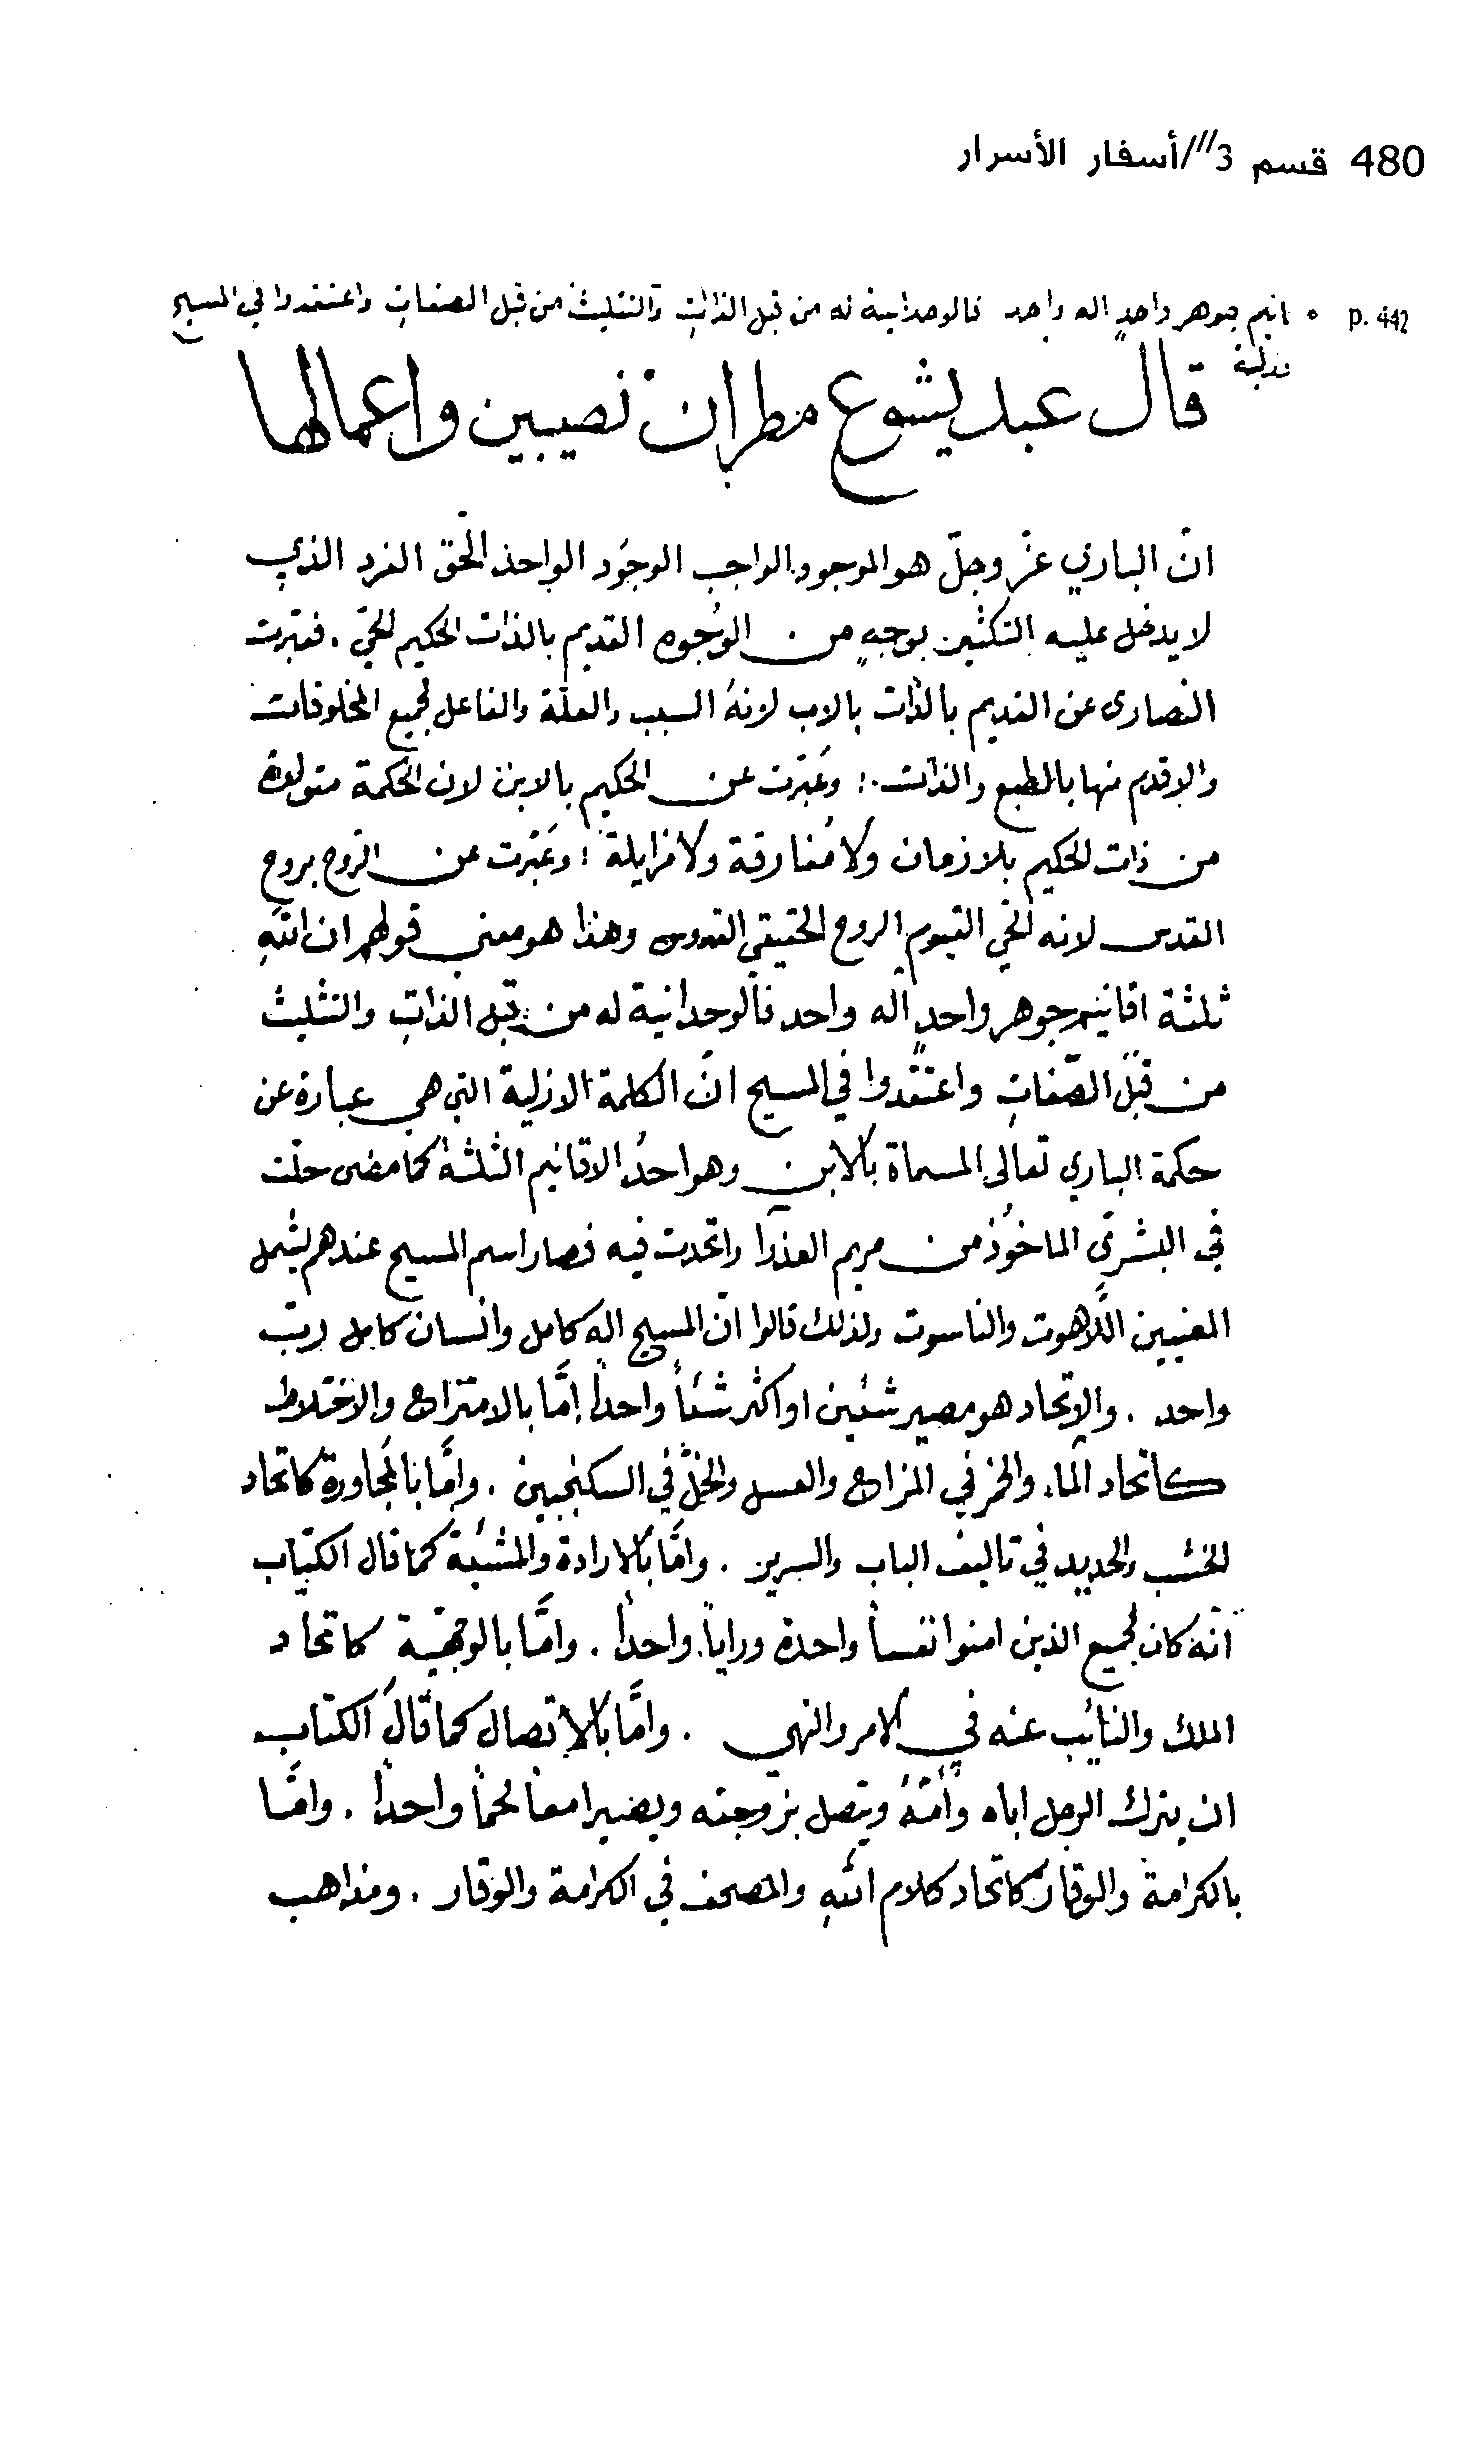 480 قسم 3///أسفار الأسرار
p. 442 ٥ انيم جوهر واحدٍ اله واحد فالوحدانية له من قبل الذاتِ والتثليث من قبل الصفاتِ واعتقدوا في المسيح
قال عبد يشوع مطران نصيبين واعمالها
انّ الباري عزّ وجلّ هو الموجود الواجب الوجُود الواحد الحق الفرد الذي
لا يدخل عليه التكثير بوجهٍ من الوُجوه القديم بالذات الحكيم الحيّ . فعبّرت
النصارى عن القديم بالذات بالاب لانهُ السبب والعلّة والفاعل لجميع المخلوقات
والاقدم منها بالطبع والذات : وعَبّرت عن الحكيم بالابن لان الحكمة متولدة
من ذات الحكيم بلا زمان ولا مُفارقة ولا مزايلة : وعَبّرت عن الروح بروح
القدس لانه الحي القيوم الروح الحقيقي القدوس وهذا هو معني قولهم ان اللّٰه
ثلثة اقانيم جوهر واحدٍ اله واحد فالوحدانية له من قبل الذاتِ والتثليث
من قبل الصّفاتِ واعتقدوا في المسيح انّ الكلمة الازلية التي هي عبارة عن
حكمة الباري تعالى المسماة بالابن وهو احدُ الاقانيم الثلثة كما مضى حلّت
في البشرىِّ الماخوُذ من مريم العذرا واتحدت فيه فصار اسم المسيح عندهم يشمل
المعنيين اللّاهوت والناسوت ولذلك قالوا انّ المسيح اله كامل وانسان كامل ربّ
واحد . والاتحاد هو مصير شئين او اكثر شئاً واحداً إمَّا بالامتزاج والاختلاط
كاتحاد المآء والخمر في المزاج والعسل والخلّ في السكنجبين . وإمَّا بالمُجاورة كاتحاد
الخشب والحديد في تاليف الباب والسرير . وامَّا بالارادة والمشئية كما قال الكتاب
انّه كان لجميع الذين امنوا نفساً واحدة وراياً واحداً . وامَّا بالوجهيّة كاتحاد
الملك والنائب عنه في الامر والنهي . وامَّا بالاتصال كما قال الكتاب
ان يترك الرجل اباه وأمّهُ ويتصل بزوجته ويصيرا معاً لحماً واحداً . وامَّا
بالكرامة والوقار كاتحاد كلام اللّٰه والمصحف في الكرامة والوقار . ومذاهب